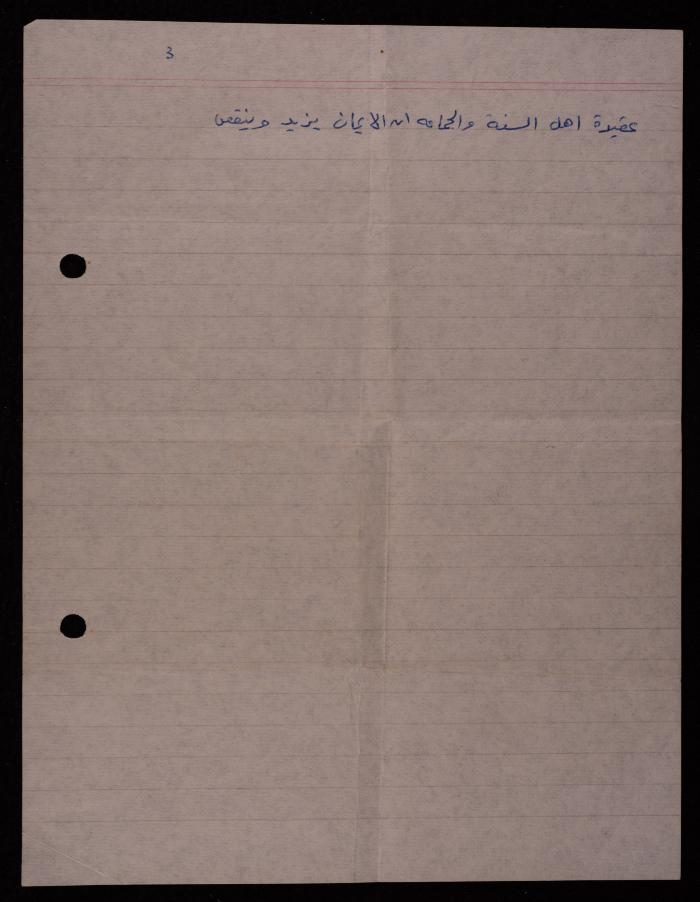 3
عقيدة اهل السنة والجماعه ان الايمان يزيد وينقص